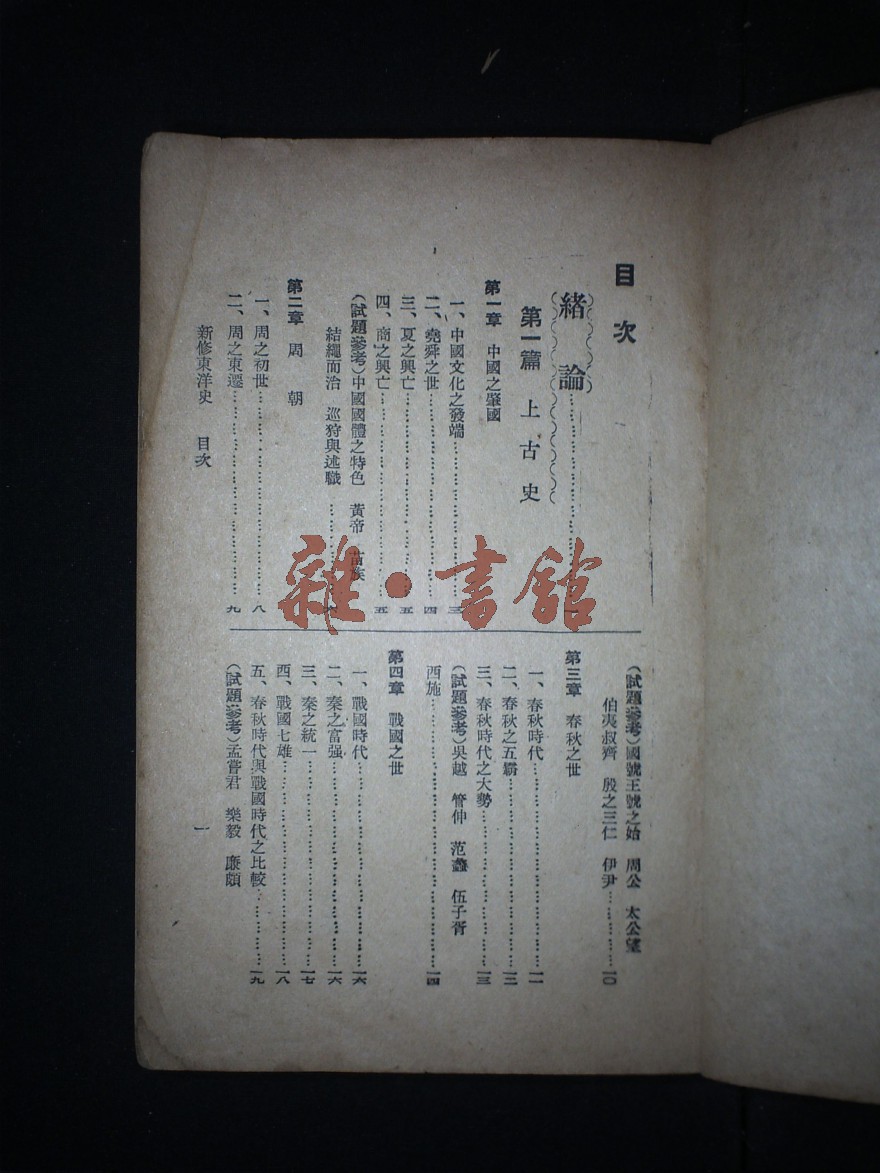 目次
緒論……一
第一篇 上古史
第一章 中國之肇國
一、中國文化之發端……三
二、堯舜之世……四
三、夏之興亡……五
四、商之興亡……五
(試題參考)中國國體之特色 黃帝 苗族
結繩而治 巡狩與述職……
第二章 周朝
一、周之初世……八
二、周之東遷……九
新修東洋史 目次
(試題參考)國號王號之始 周公 太公望
伯夷叔齊 殷之三仁 伊尹……一〇
第三章 春秋之世
一、春秋時代……一一
二、春秋之五霸……一二
三、春秋時代之大勢……一三
(試題參考)吳越 管仲 范蠡 伍子胥
西施……一四
第四章 戰國之世
一、戰國時代……一六
二、秦之富强……一六
三、秦之統一……一七
四、戰國七雄……一八
五、春秋時代與戰國時代之比較……一九
(試題參考)孟嘗君 樂毅 廉頗
一
雜·書館